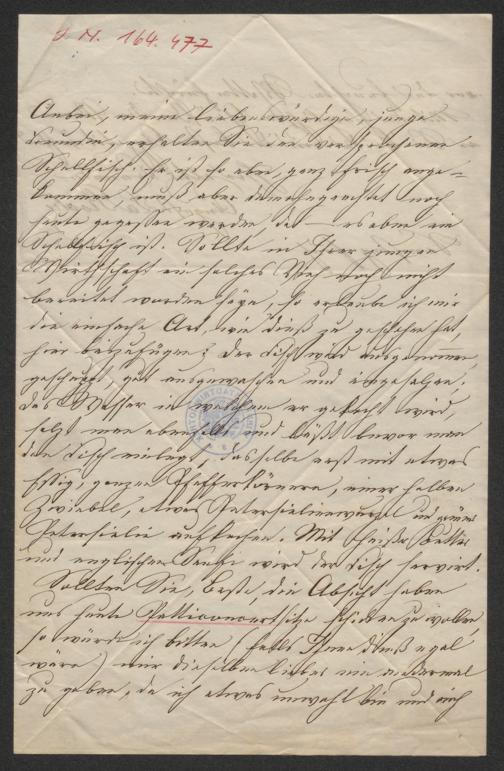 J. N. 164.477
Anbei, meine liebenswürdige, junge
Freundin, erhalten Sie den versprochenen
Schellfisch. Er ist so eben, ganz frisch ange-
kommen, muß aber demohngeachtet noch
heute gegessen werden, da es eben ein
Schellfisch ist. Sollte in Ihrer jungen
Wirthschaft ein solches Vieh noch nicht
bereitet worden seyn, so erlaube ich mir
die einfache Art, wie dieß zu geschehen hat,
hier beizufügen: Der Fisch wird ausgenommen,
geschuppt, gut ausgewaschen und eingesalzen.
Das Wasser in welchem er gekocht wird,
salzt man ebenfalls und läßt bevor man
den Fisch einlegt, dasselbe erst mit etwas
Essig, ganzen Pfefferkörnern, einer halben
Zwiebel, etwas Petersilienwurzel und grüner
Petersielie aufkochen. Mit heißer Butter
und englischem Senf wird der Fisch servirt.
Sollten Sie, Beste, die Absicht haben
uns heute Patticoncertsitze schicken zu wollen,
so würde ich bitten (falls Ihnen dieß egal
wäre) mir dieselben lieber ein andermal
zu geben, da ich etwas unwohl bin und mich